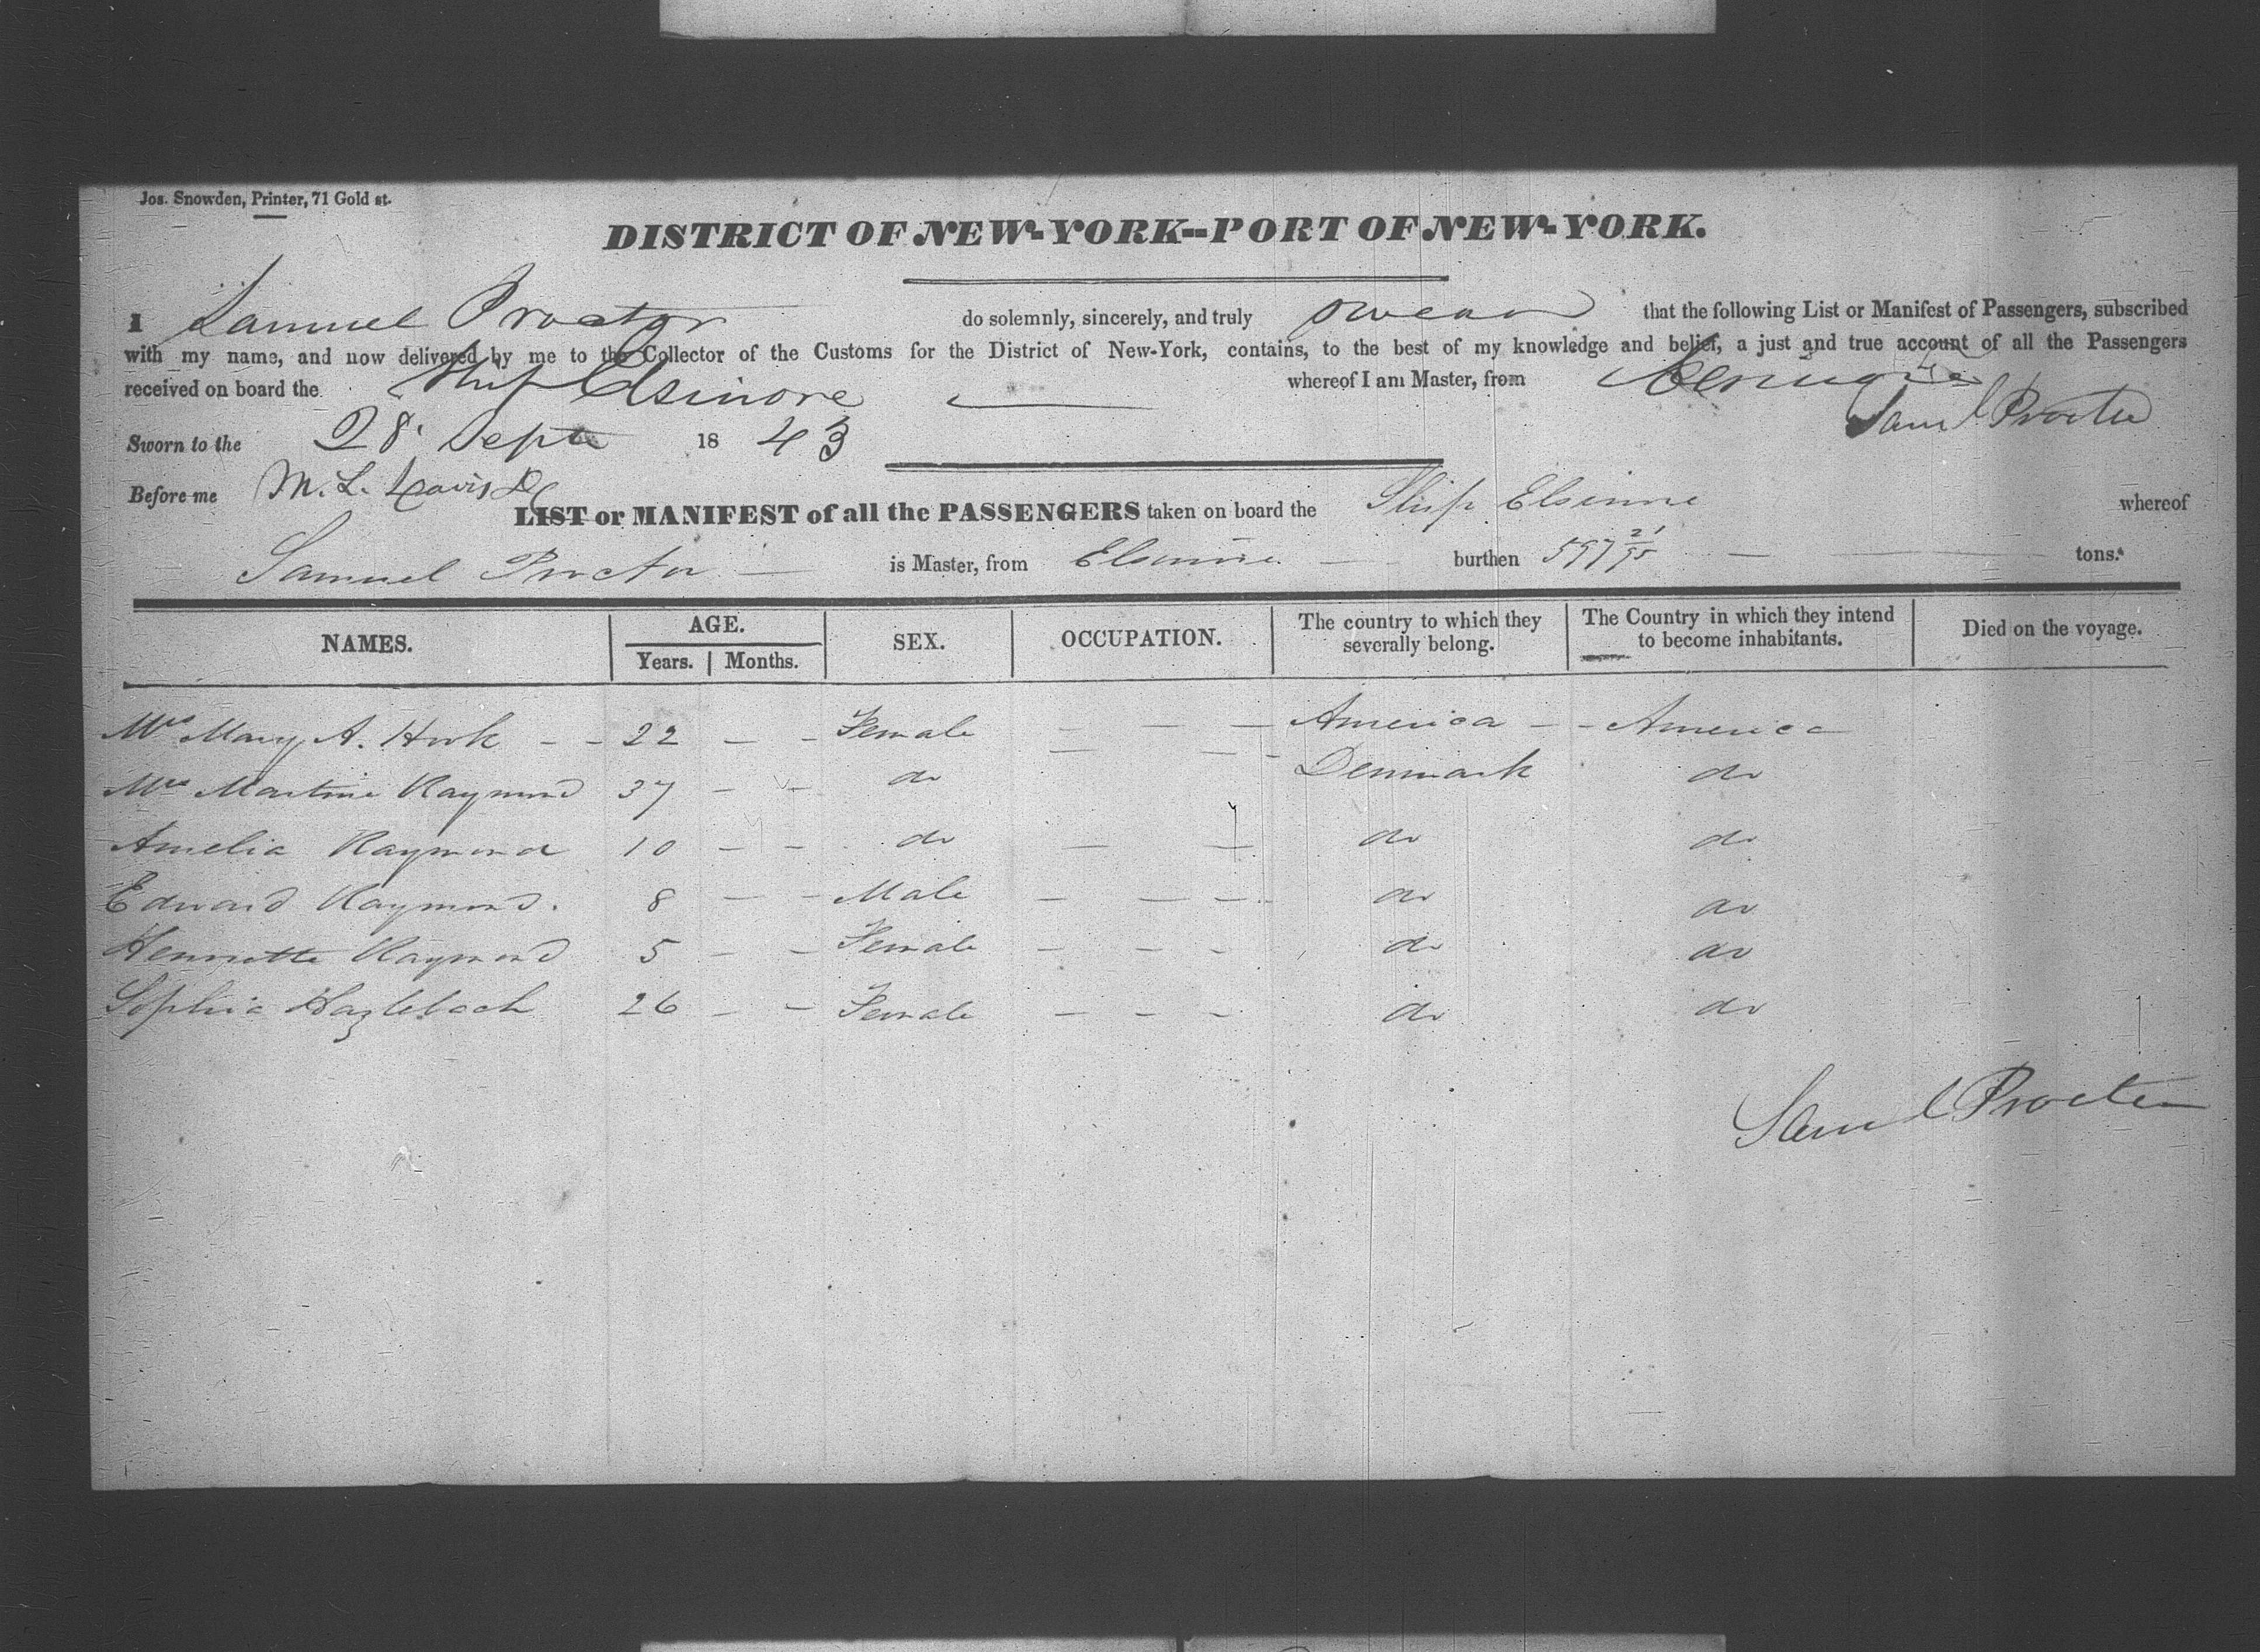 Jos. Snowden, Printer, 71 Gold st.
DISTRICT OF NEW-YORK--PORT OF NEW-YORK.
I Samuel Proctor do solemnly, sincerely, and truly swear that the following List or Manifest of Passengers, subscribed
with my name, and now delivered by me to the Collector of the Customs for the District of New-York, contains, to the best of my knowledge and belief, a just and true account of all the Passengers
received on board the Ship Elsinore whereof I am Master, from Elsinore
Saml Proctor
Sworn to the 28 Sept 1843
Before me M. L. Davis
LIST or MANIFEST of all the PASSENGERS taken on board the Ship Elsinore whereof
Samuel Proctor is Master, from Elsinore burthen 597 21/95 tons.
NAMES. AGE. Years. Months. SEX. OCCUPATION. The country to which they severally belong. The Country in which they intend to become inhabitants. Died on the voyage.
Mrs Mary A. Hook - - 22 - - Female - - - America - - America
Mrs Martine Raymond 37 - - do - - - Denmark do
Amelia Raymond 10 - - do - - do do
Edward Raymond. 8 - - Male - - - do do
Henriette Raymond 5 - - Female - - - do do
Sophia Hazleboch 26 - - Female - - - do do
Saml Proctor